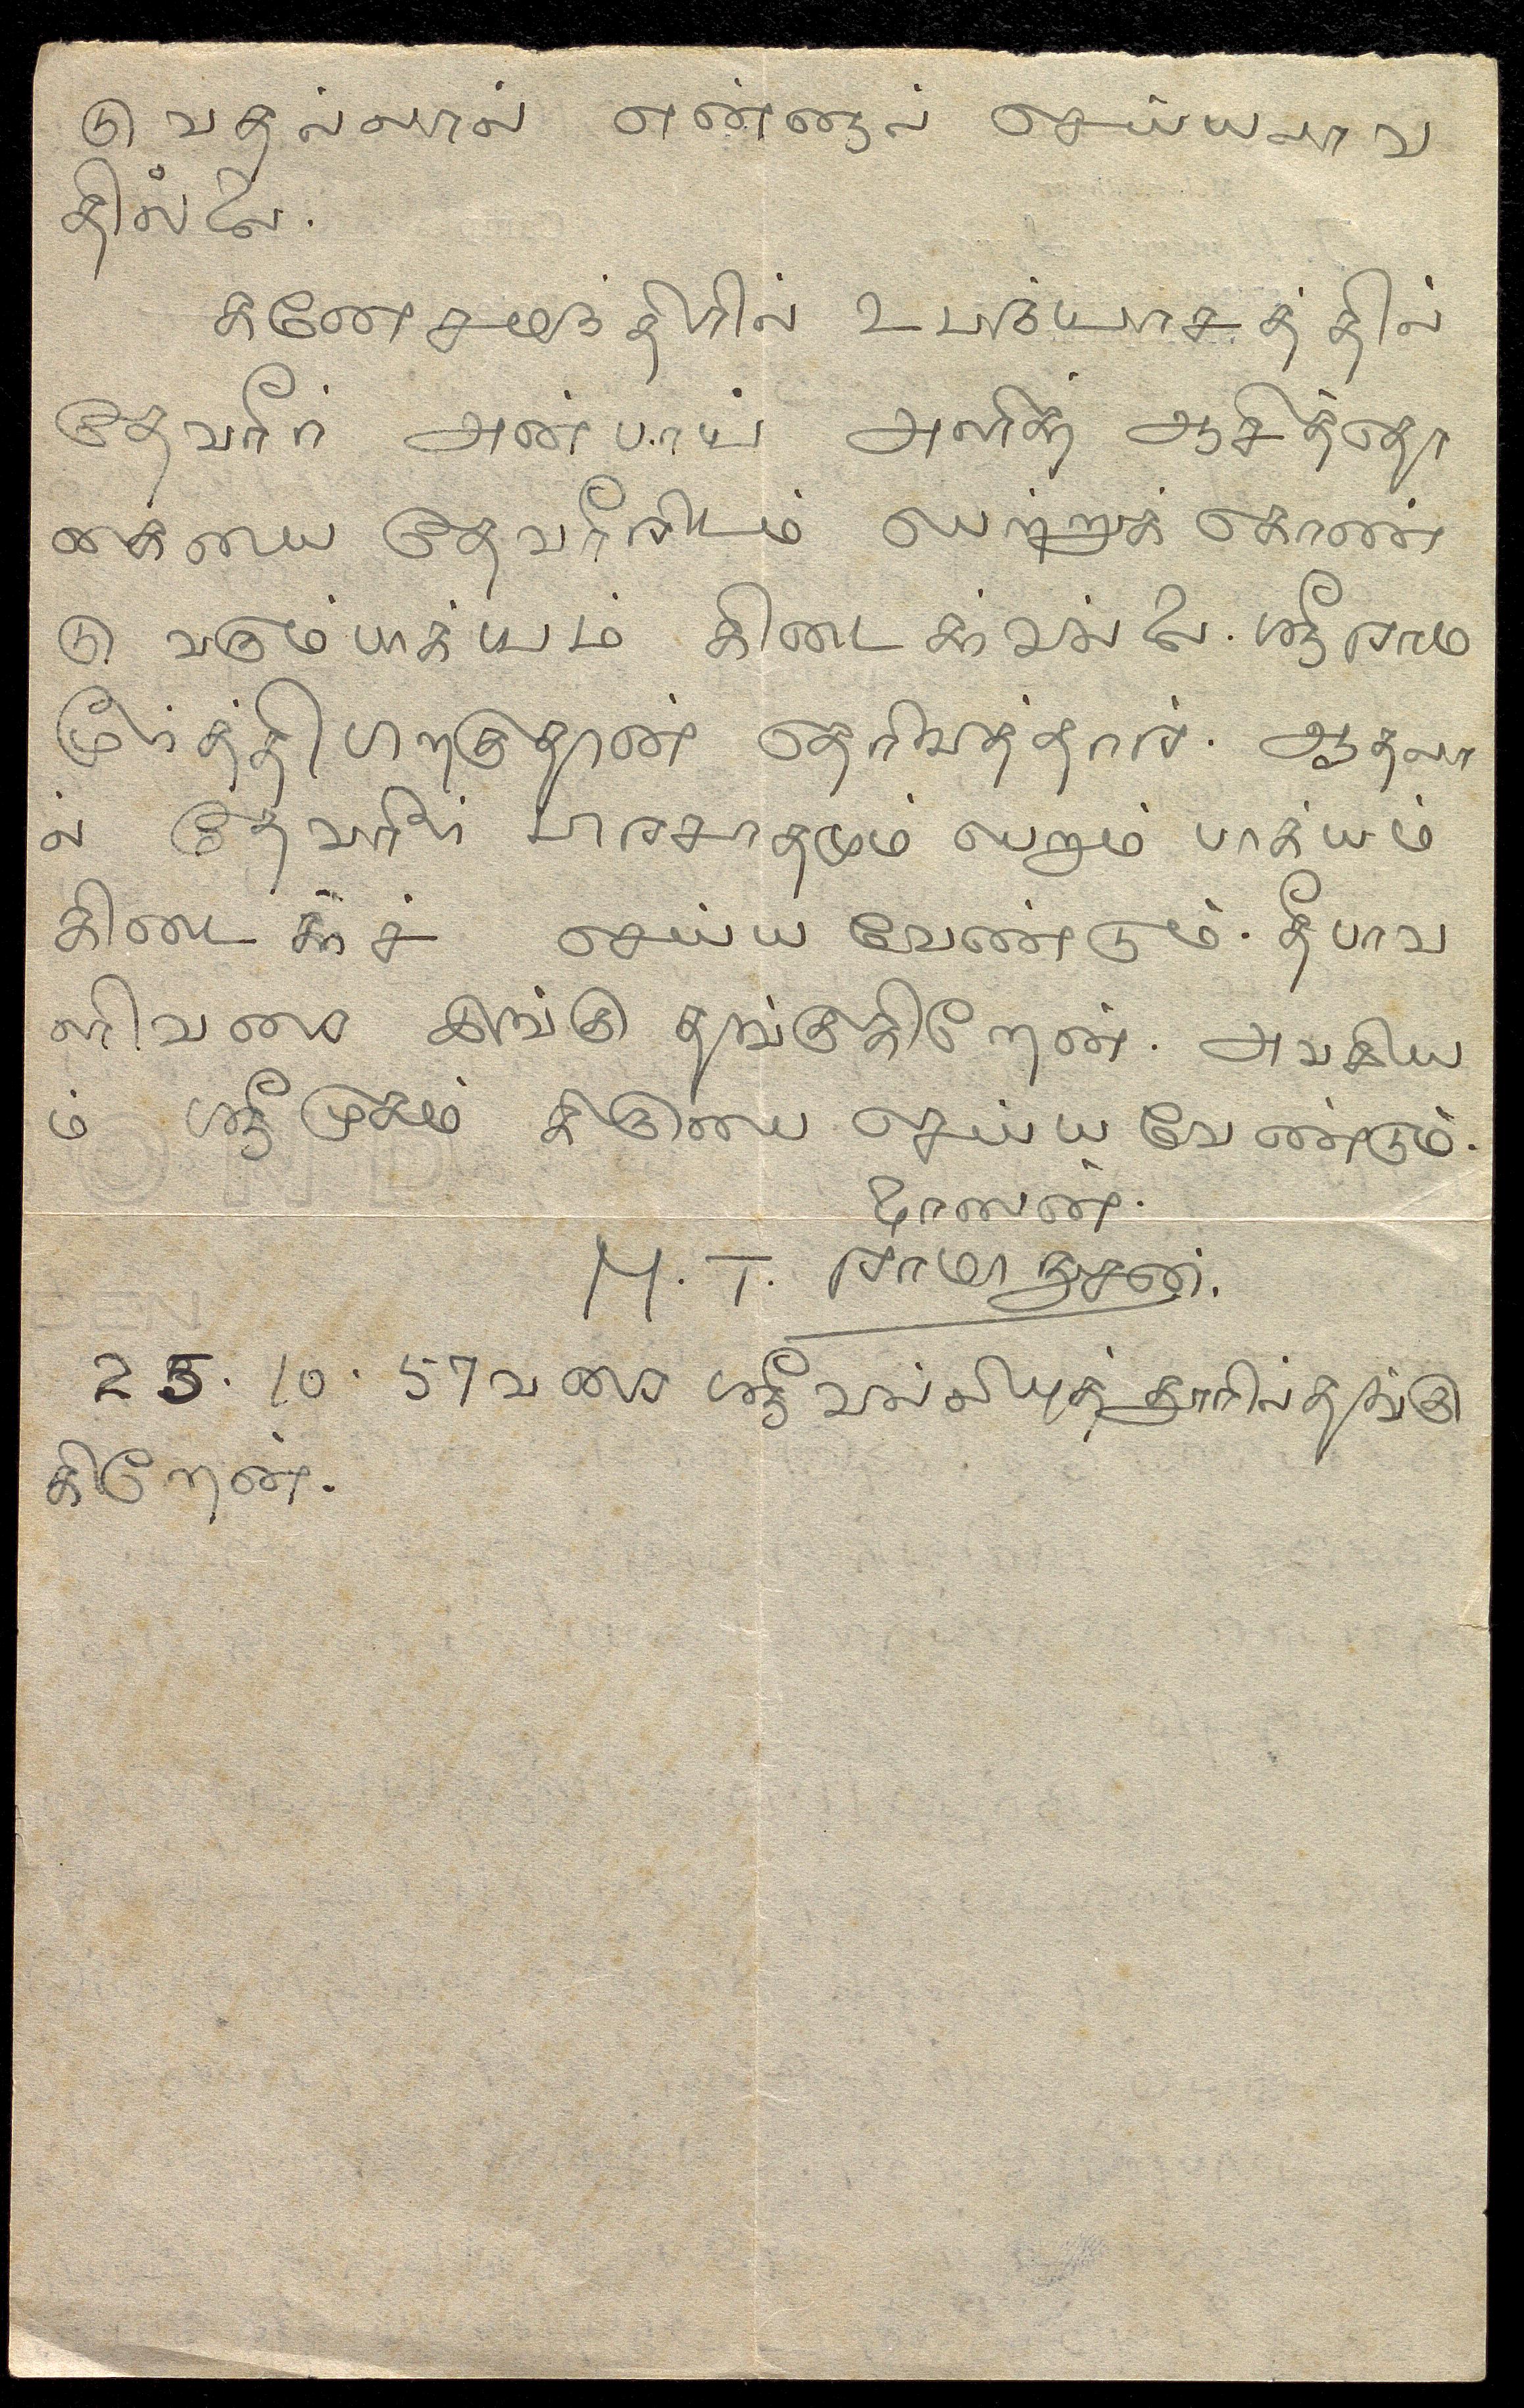 டுவதல்லால் என்னால் செய்யலாவ
தில்லை.
கணேசமூர்த்தியில் உபந்யாசத்தில்
தேவரீர் அன்பாய் அளித்த ஆசித்தொ
கையை தேவரீரிடம் பெற்றுக் கொண்
டு வரும்பாக்யம் கிடைக்கவில்லை. ஸ்ரீராம
மூர்த்தி பிறகுதான் தெரிவித்தார். ஆதலா
ல் தேவரீர் பிரசாதமும் பெறும் பாக்யம்
கிடைக்கச் செய்ய வேண்டும். தீபாவ
ளிவரை இங்கு தங்குகிறேன். அவசிய
ம் ஸ்ரீமுகம் கிருபை செய்ய வேண்டும்.
தாஸன்.
M. T. ராமாநுசன்.
25. 10. 57வரை ஸ்ரீவில்லிபுத்தூரில் தங்கு
கிறேன்.
BOND
DEN